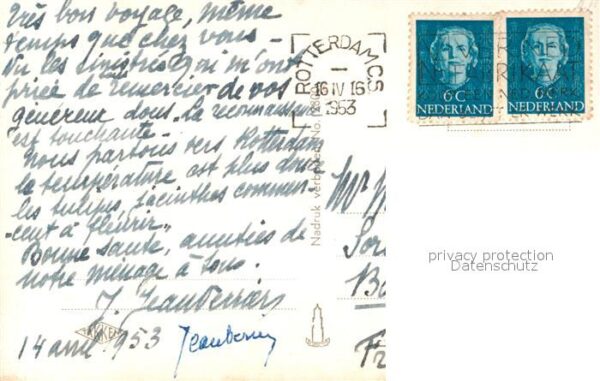 Très bon voyage, même
temps que chez vous -
Vu les sinistrés qui m'ont
priée de remercier de vos
généreux dons, la reconnaissance
est touchante -
nous partons vers Rotterdam
la température est plus douce
les tulipes, jacinthes commen-
cent à fleurir.
Bonne santé, amitiés de
notre ménage à tous.
J. Jean
14 avril 953
ROTTERDAM C.S
16 IV 16
1953
6 C
NEDERLAND
6 C
NEDERLAND
Nadruk verboden No.
privacy protection
Datenschutz